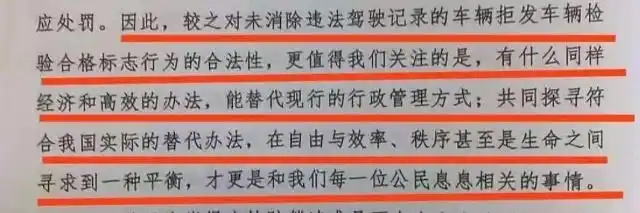 应处罚。因此，较之对未消除违法驾驶记录的车辆拒发车辆检
验合格标志行为的合法性，更值得我们关注的是，有什么同样
经济和高效的办法，能替代现行的行政管理方式；共同探寻符
合我国实际的替代办法，在自由与效率、秩序甚至是生命之间
寻求到一种平衡，才更是和我们每一位公民息息相关的事情。